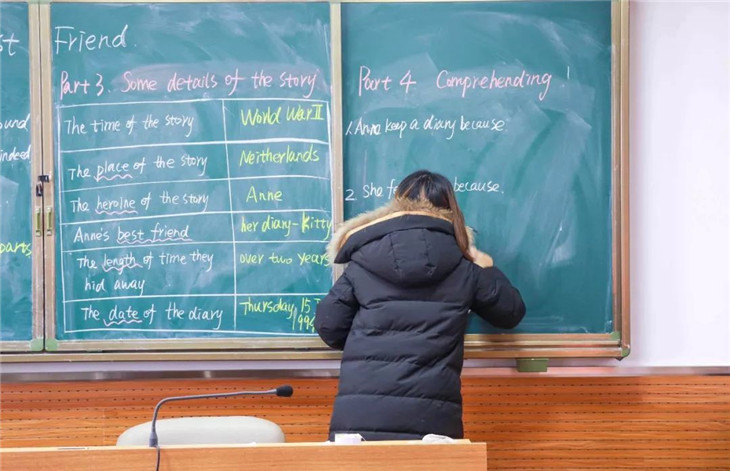 st
Friend.
ound
indeed
parts
Part 3. Some details of the story
The time of the story World War II
The place of the story Neitherlands
The heroine of the story Anne
Anne's best friend her diary - Kitty
The length of time they over two years
hid away
The date of the diary Thursday, 15
Part 4 Comprehending!
1. Anne keep a diary because.
2. She because.